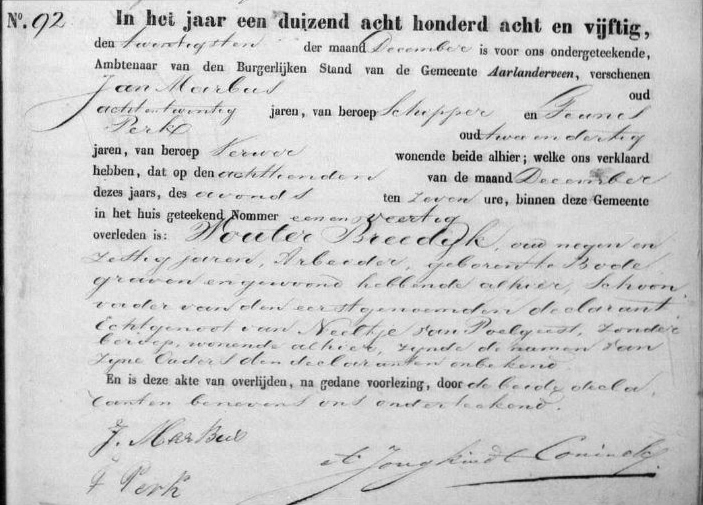 No. 92 In het jaar een duizend acht honderd acht en vijftig,
den twintigsten der maand December is voor ons ondergeteekende,
Ambtenaar van den Burgerlijken Stand van de Gemeente Aarlanderveen, verschenen
Jan Marbus oud
achtentwintig jaren, van beroep Schipper en Teunes
Perk oud twee en dertig
jaren, van beroep Verwer wonende beide alhier; welke ons verklaard
hebben, dat op den achttienden van de maand December
dezes jaars, des avonds ten zeven ure, binnen deze Gemeente
in het huis geteekend Nommer een en veertig
overleden is: Wouter Breedijk, oud negen en
zestig jaren, Arbeider, geboren te Bode
graven en gewoond hebbende alhier, Schoon
vader van den eerstgenoemden declarant
Echtgenoot van Neeltje van Poelgeest, zonder
beroep, wonende alhier, zynde de namen van
zyne Ouders den declaranten onbekend.
En is deze akte van overlijden, na gedane voorlezing, door de beide decla
ranten benevens ons onderteekend.
J. Marbus
Jongkindt Coninck
T Perk